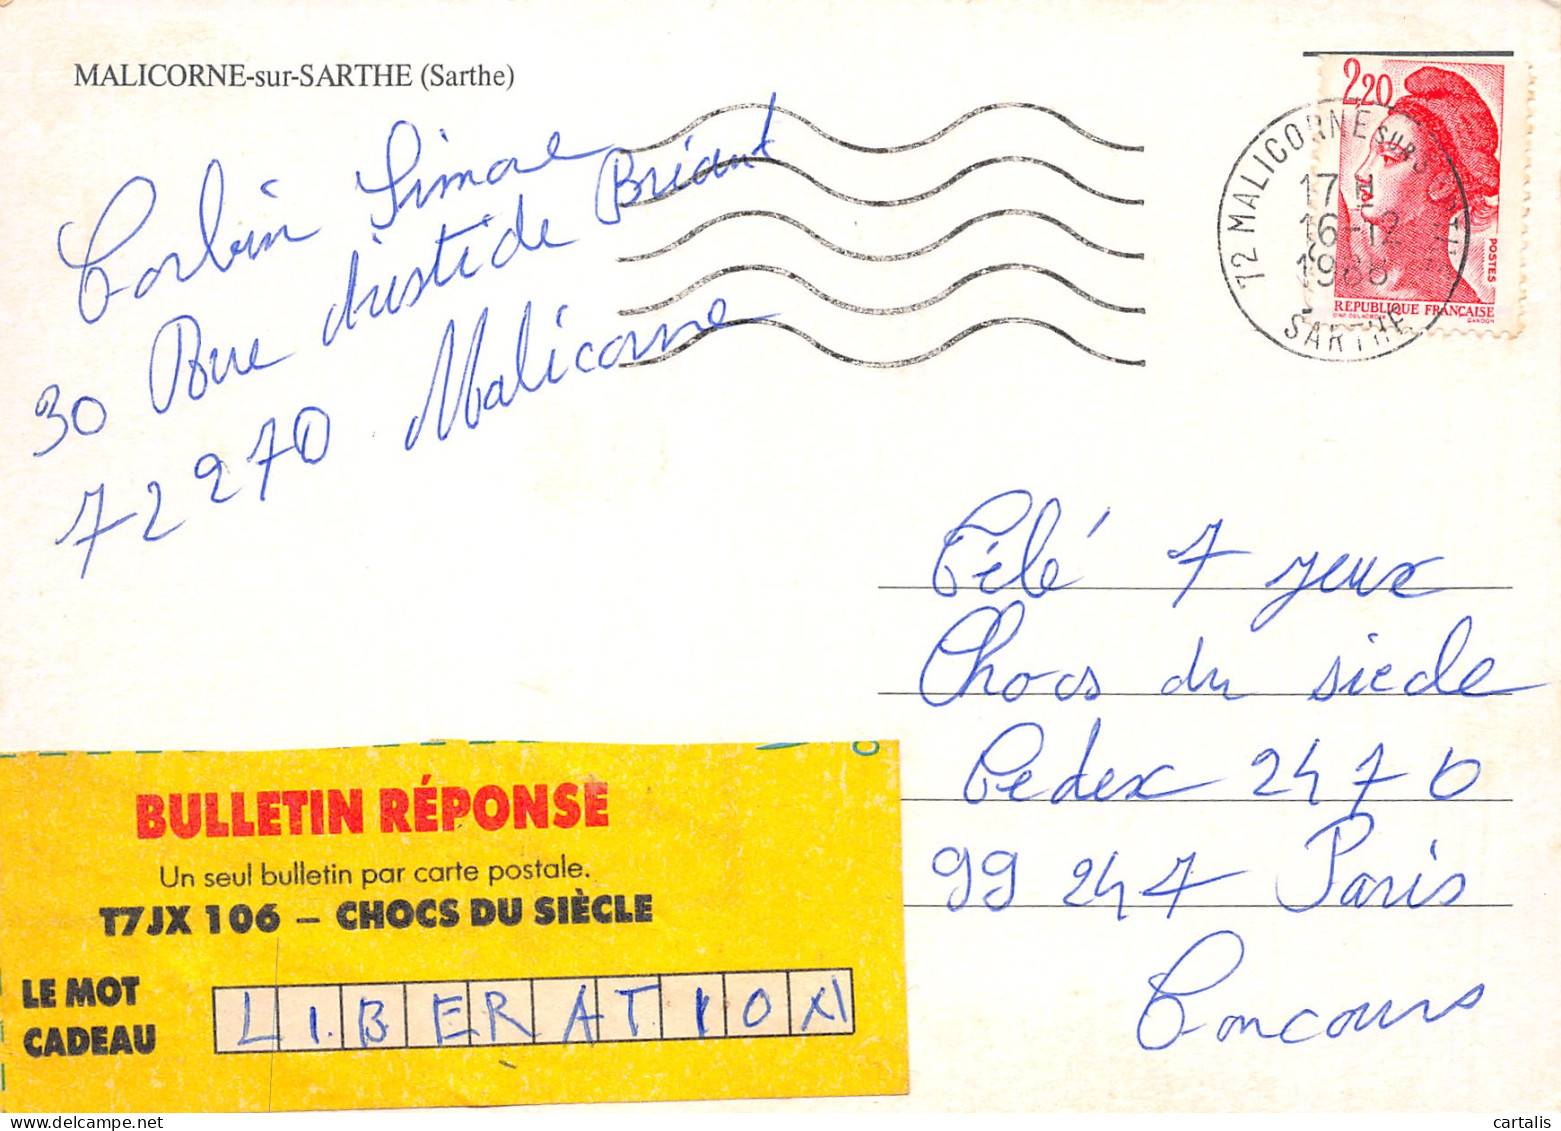 MALICORNE-sur-SARTHE (Sarthe)
Corbin Simone
30 Rue Aristide Briant
72270 Malicorne
2,20
72 MALICORNE SUR SARTHE
17 H
16-12
1986
SARTHE
POSTES
REPUBLIQUE FRANÇAISE
GANDON
Télé 7 jeux
Chocs du siecle
Cedex 2470
99247 Paris
Concours
BULLETIN RÉPONSE
Un seul bulletin par carte postale.
T7JX 106 – CHOCS DU SIÈCLE
LE MOT
CADEAU
LIBERATION
cartalis